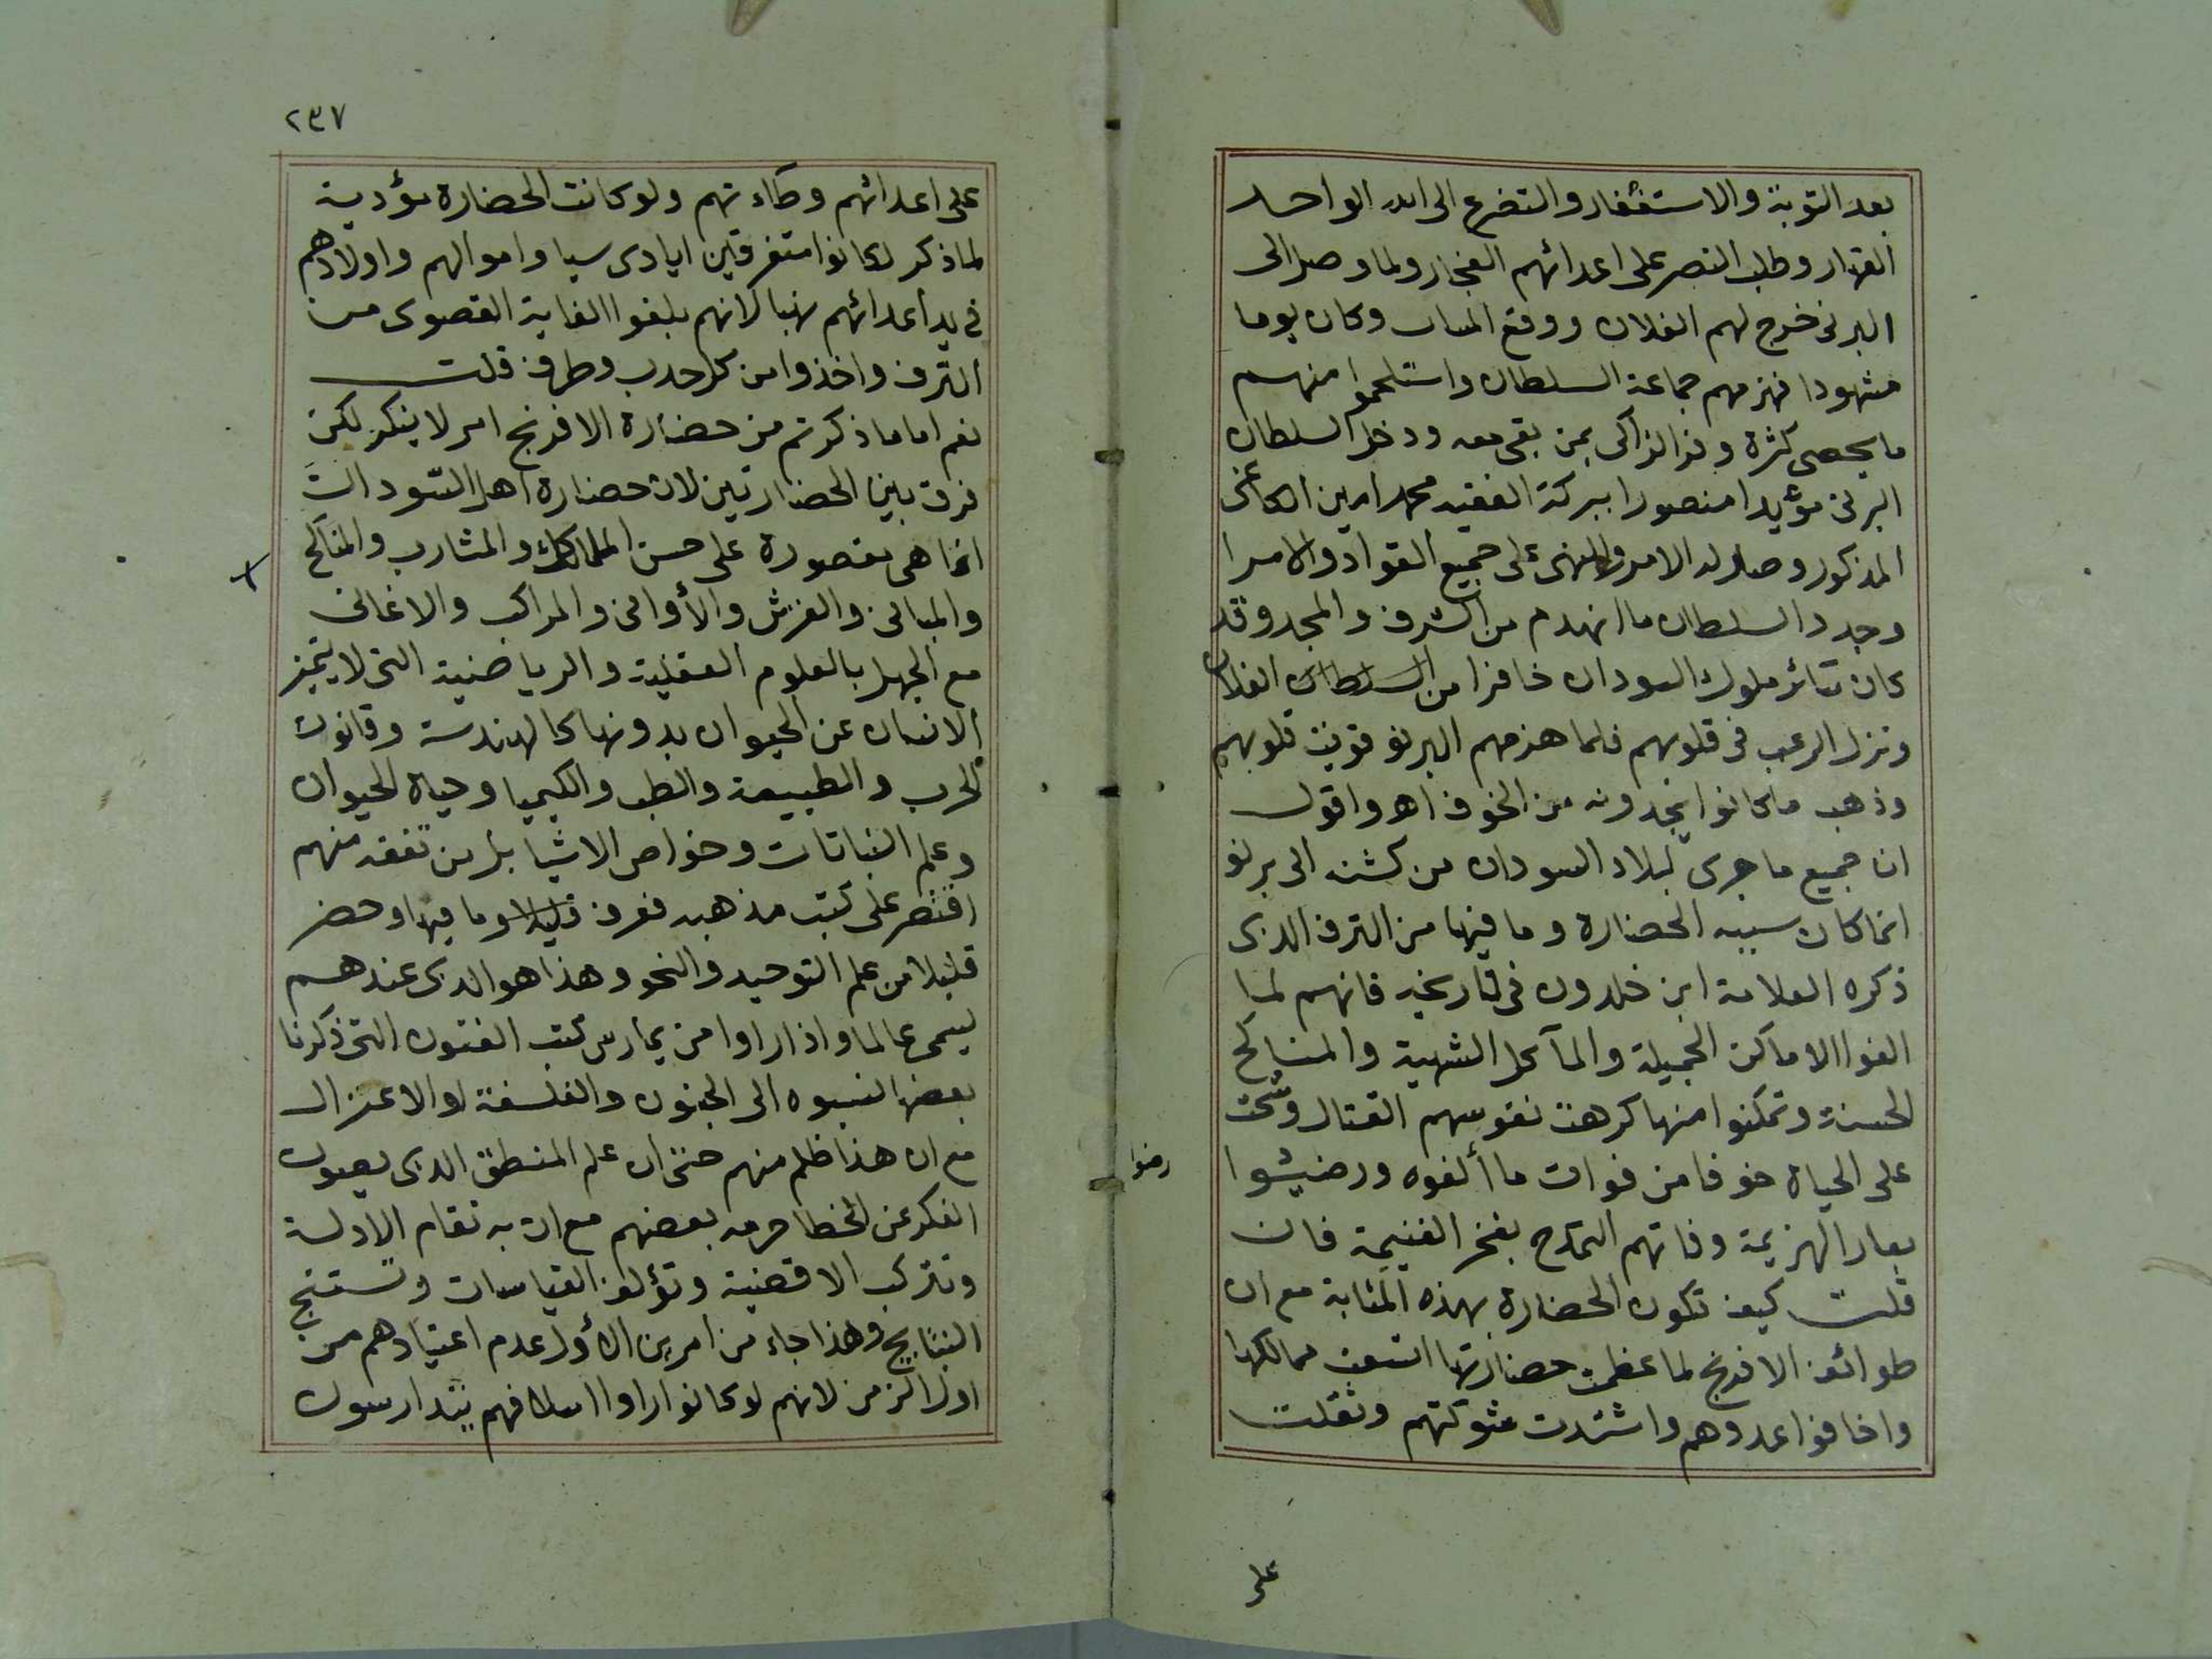 بعد التوبة والاستغفار والتضرع الى الله الواحد
القهار وطلب النصر على اعدائهم الفجار ولما وصل الى
البرنى خرج لهم الفلان ووقع المصاف وكان يوما
مشهودا فهزمهم جماعة السلطان واستلحموا منهم
ما يحصى كثرة وفر الزاكى بمن بقى معه ودخل السلطان
البرنى مؤيدا منصورا ببركة الفقيه محمد امين الكانمى
المذكور وصار له الامر والنهى على جميع القواد والامرا
وجدد السلطان ما انهدم من الشرف والمجد وقد
كان سائر ملوك السودان خافرا من السلطان الفلان
ونزل الرعب فى قلوبهم فلما هزمهم البرنو قويت قلوبهم
وذهب ما كانوا يجدونه من الخوف اهـ واقول
ان جميع ما جرى لبلاد السودان من كشنه الى برنو
انما كان سببه الحضارة وما فيها من الترف الذى
ذكره العلامة ابن خلدون فى تاريخه فانهم لما
الفوا الاماكن الجميلة والمآكل الشهية والمناكح
الحسنة وتمكنوا منها كرهت نفوسهم القتال وشحت
على الحياة خوفا من فوات ما ألفوه ورضيوا
رضوا
بعار الهزيمة وفاتهم التمدح بفخر الغنيمة فان
قلت كيف تكون الحضارة بهذه المثابة مع ان
طوائف الافرنج لما عظمت حضارتها اتسعت ممالكها
واخافوا عدوهم واشتدت شوكتهم وثقلت
على
٢٣٧
على اعدائهم وطاءتهم ولو كانت الحضارة مؤدية
لما ذكر لكانوا متفرقين ايادى سبا واموالهم واولادهم
فى يد أعدائهم نهبا لانهم بلغوا الغاية القصوى من
الترف واخذوا من كل حدب وطرف قلت
نعم اما ما ذكرتم من حضارة الافرنج امر لا ينكر لكن
فرق بين الحضارتين لان حضارة اهل السودان
انما هى مقصورة على حسن المآكل والمشارب والمناكح
والمبانى والفرش والأوانى والمراكب والاغانى
مع الجهل بالعلوم العقلية والرياضية التى لا يتميز
الانسان عن الحيوان بدونها كالهندسة وقانون
الحرب والطبيعة والطب والكيميا وحياة الحيوان
وعلم النباتات وخواص الاشيا بل من تفقه منهم
اقتصر على كتب مذهبه فعرف قليلا وما فيها وحضر
قليلا من علم التوحيد والنحو وهذا هو الذى عندهم
يسمى عالما واذا راوا من يمارس كتب الفنون التى ذكرنا
بعضها نسبوه الى الجنون والفلسفة او الاعتزال
مع ان هذا ظلم منهم حتى ان علم المنطق الذى يصون
الفكر عن الخطا حرمه بعضهم مع ان به تقام الادلة
وتتركب الاقضية وتؤلف القياسات وتستنتج
النتايج وهذا جاء من امرين الأول عدم اعتيادهم من
اول الزمن لانهم لو كانوا راوا اسلافهم يتدارسون